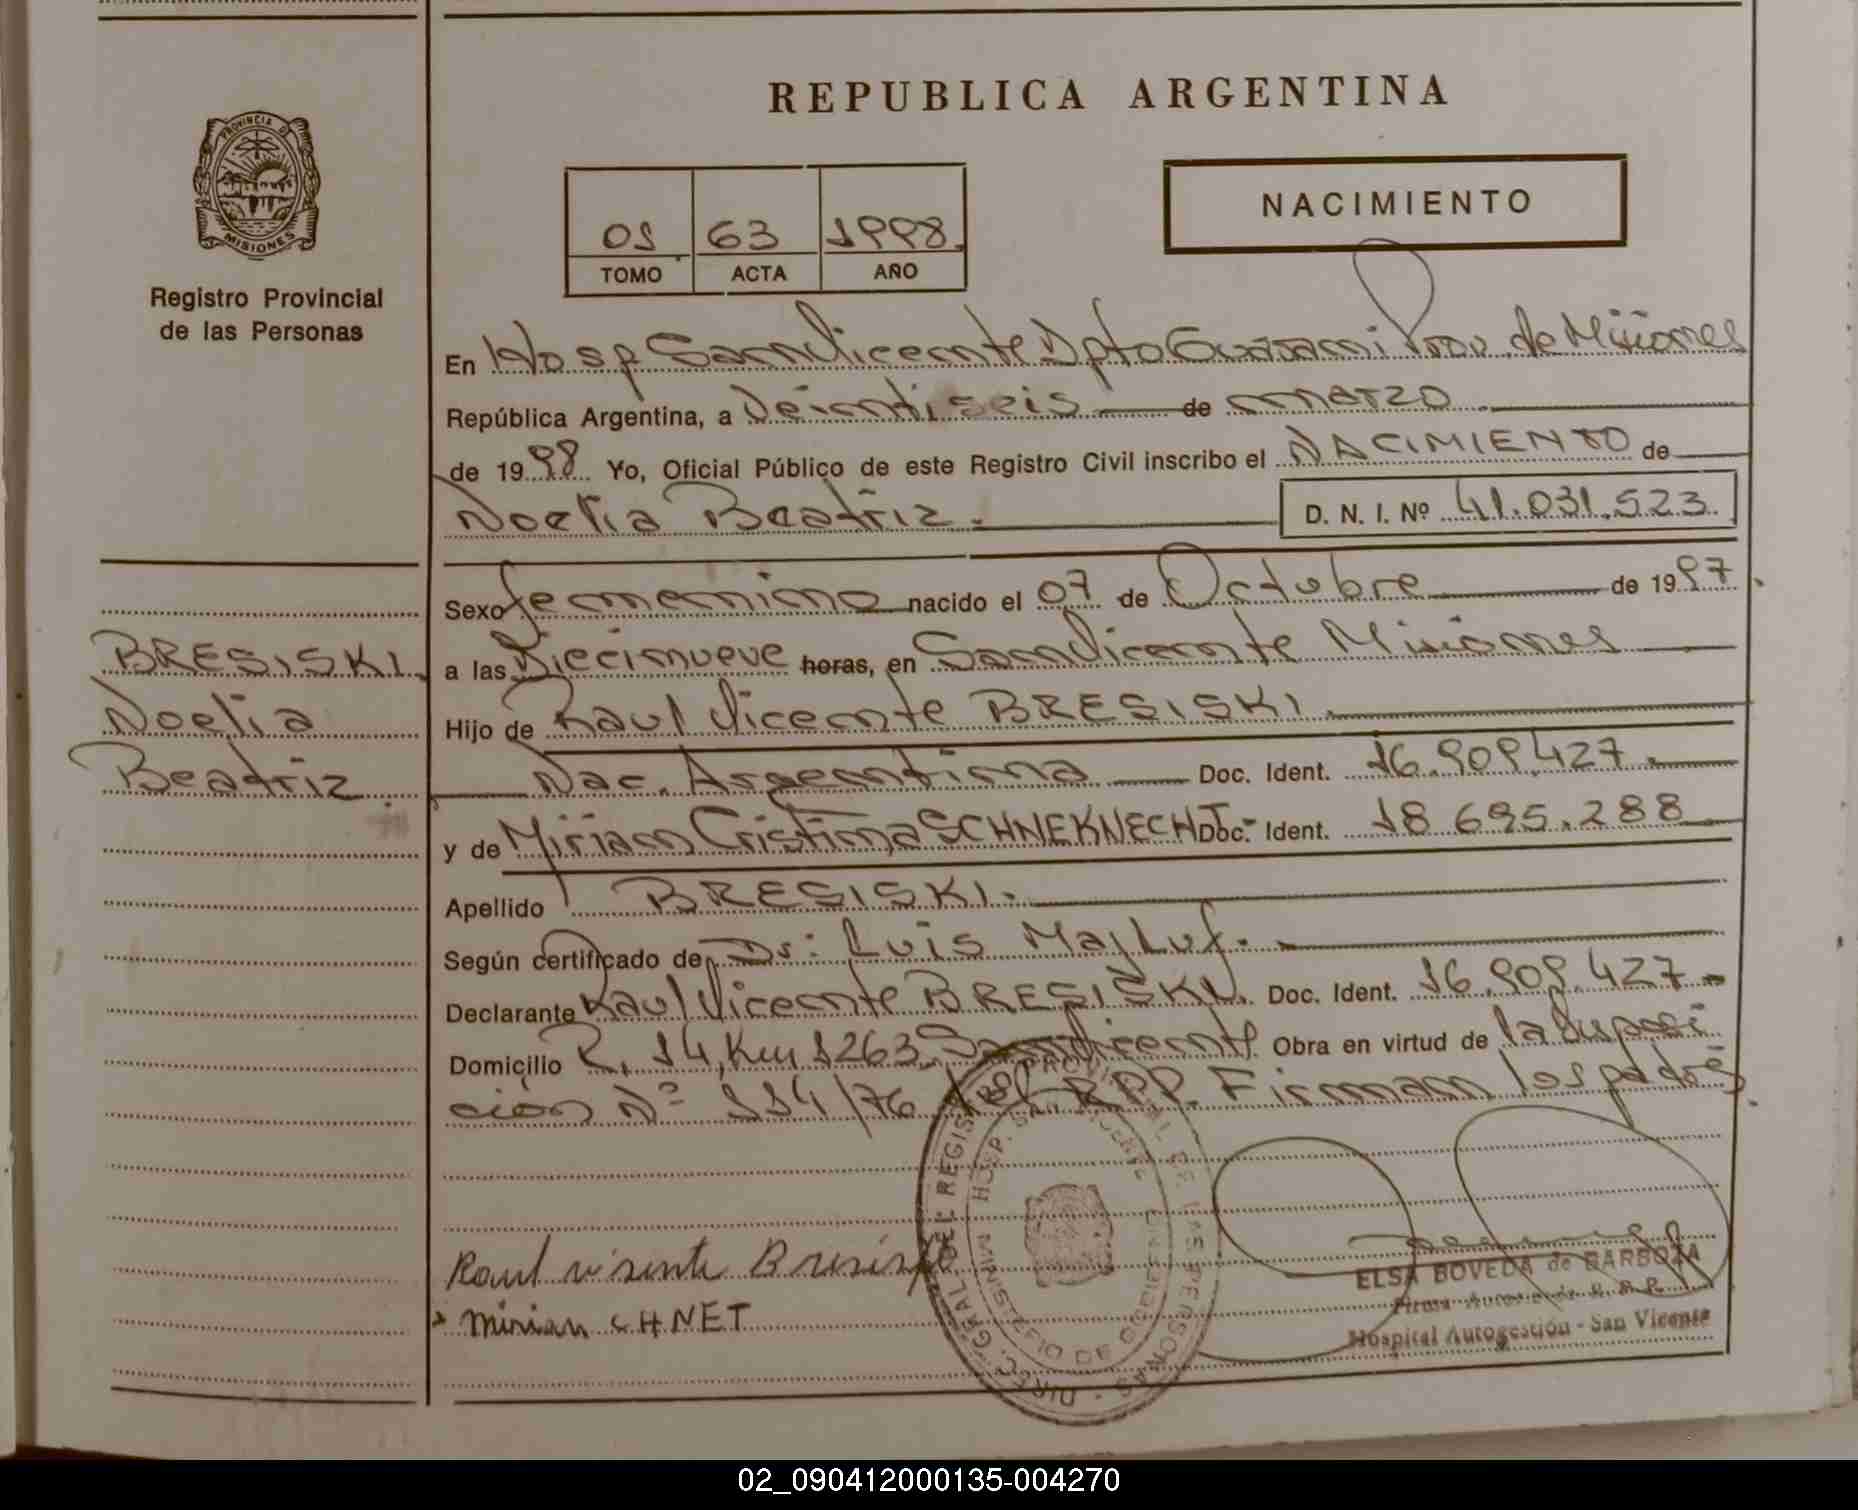 REPUBLICA ARGENTINA
PROVINCIA DE
MISIONES
Registro Provincial
de las Personas
01 63 1998
TOMO ACTA AÑO
NACIMIENTO
En Hosp San Vicente Dpto Guarani Prov. de Misiones
República Argentina, a Veintiseis de marzo
de 1998 Yo, Oficial Público de este Registro Civil inscribo el NACIMIENTO de
Noelia Beatriz.
D. N. I. Nº 41.031.523
Sexo femenino nacido el 07 de Octubre de 1997.
BRESISKI
Noelia
Beatriz
a las Diecinueve horas, en San Vicente Misiones
Hijo de Raul Vicente BRESISKI.
Nac. Argentina Doc. Ident. 16.909.427.
y de Miriam Cristina SCHNEKNECHT- Doc. Ident. 18 695.288
Apellido BRESISKI.
Según certificado de Dr: Luis Majluf.
Declarante Raul Vicente BRESISKI. Doc. Ident. 16.909.427-
Domicilio R. 14, Km 1263 San Vicente Obra en virtud de la Disposi
cion Nº 114/76 del RPP. Firman los padres.
DIREC. GRAL. DEL REGISTRO PROVINCIAL DE LAS PERSONAS
HOSP. SAN VICENTE
MINISTERIO DE GOBIERNO
Raul visente Bresiski
Mirian CHNET
ELSA BOVEDA de BARBOZA
Firma R. P. P.
Hospital Autogestión - San Vicente
02_090412000135-004270